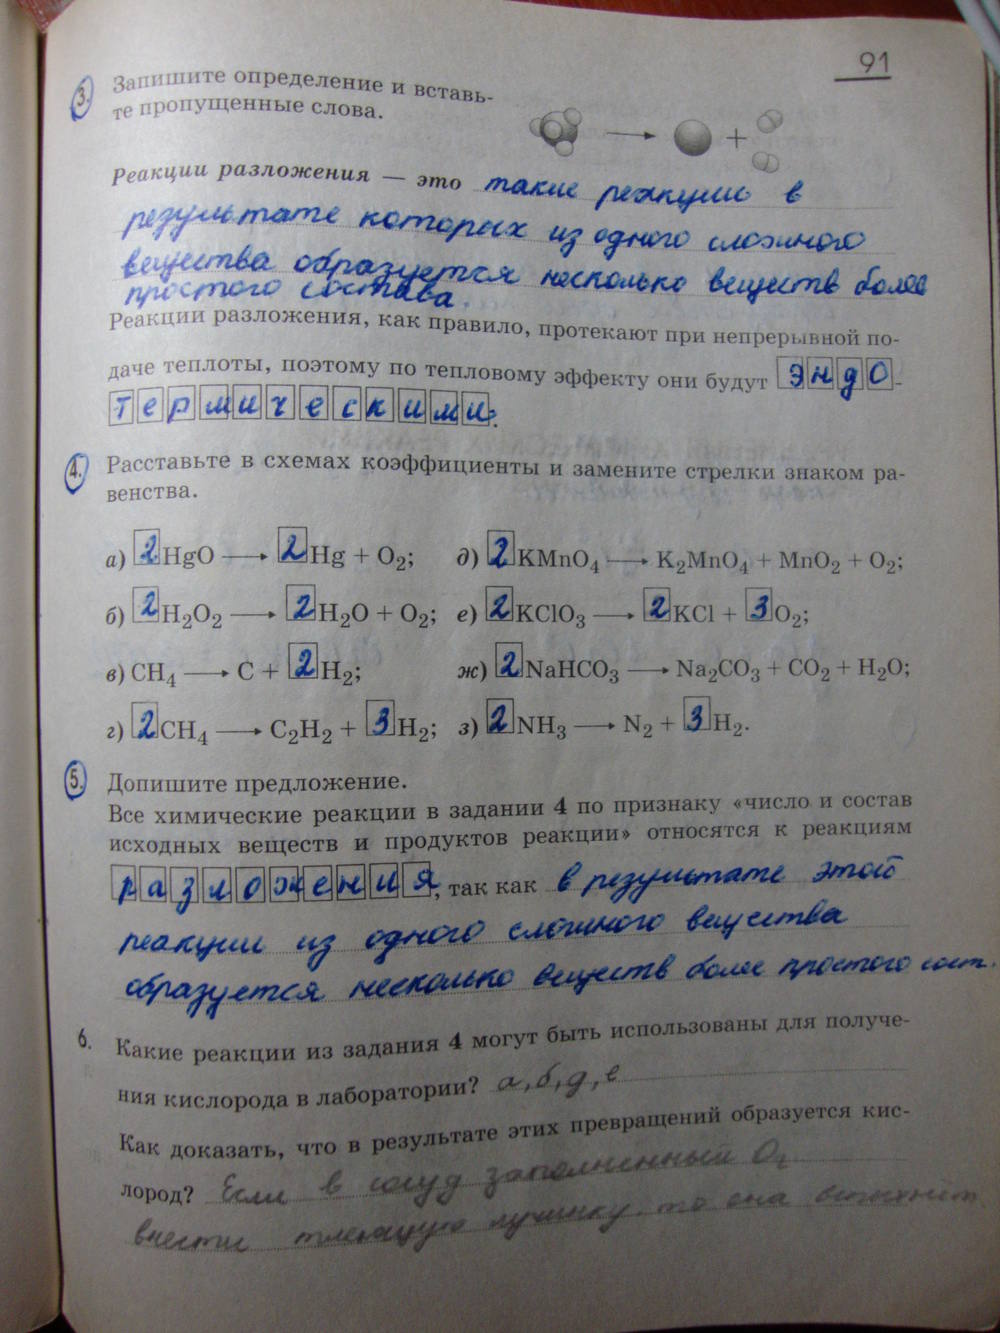 91
3. Запишите определение и вставь-
те пропущенные слова.
+
Реакции разложения — это такие реакции в
результате которых из одного сложного
вещества образуется несколько веществ более
простого состава.
Реакции разложения, как правило, протекают при непрерывной по-
даче теплоты, поэтому по тепловому эффекту они будут эндо-
термическими.
4. Расставьте в схемах коэффициенты и замените стрелки знаком ра-
венства.
а) 2HgO ⟶ 2Hg + O₂; д) 2KMnO₄ ⟶ K₂MnO₄ + MnO₂ + O₂;
б) 2H₂O₂ ⟶ 2H₂O + O₂; е) 2KClO₃ ⟶ 2KCl + 3O₂;
в) CH₄ ⟶ C + 2H₂; ж) 2NaHCO₃ ⟶ Na₂CO₃ + CO₂ + H₂O;
г) 2CH₄ ⟶ C₂H₂ + 3H₂; з) 2NH₃ ⟶ N₂ + 3H₂.
5. Допишите предложение.
Все химические реакции в задании 4 по признаку «число и состав
исходных веществ и продуктов реакции» относятся к реакциям
разложения, так как в результате этой
реакции из одного сложного вещества
образуется несколько веществ более простого сост.
6. Какие реакции из задания 4 могут быть использованы для получе-
ния кислорода в лаборатории? а, б, д, е
Как доказать, что в результате этих превращений образуется кис-
лород? Если в сосуд заполненный O₂
внести тлеющую лучинку, то она вспыхнет